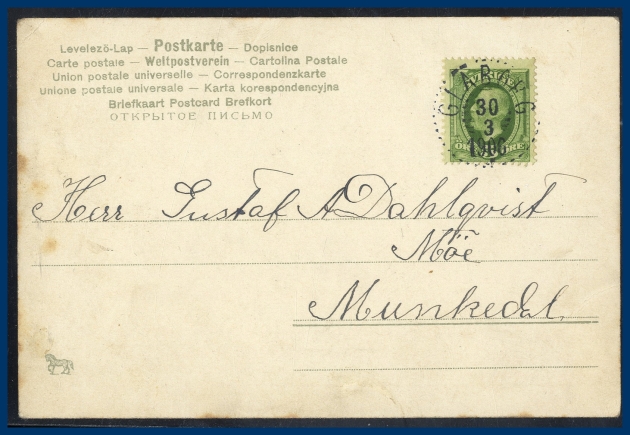 Levelezö-Lap — Postkarte — Dopisnice
Carte postale — Weltpostverein — Cartolina Postale
Union postale universelle — Correspondenzkarte
Unione postale universale — Karta korespondencyjna
Briefkaart Postcard Brefkort
ОТКРЫТОЕ ПИСЬМО
30
3
1906
Herr Gustaf A Dahlqvist
Möe
Munkedal